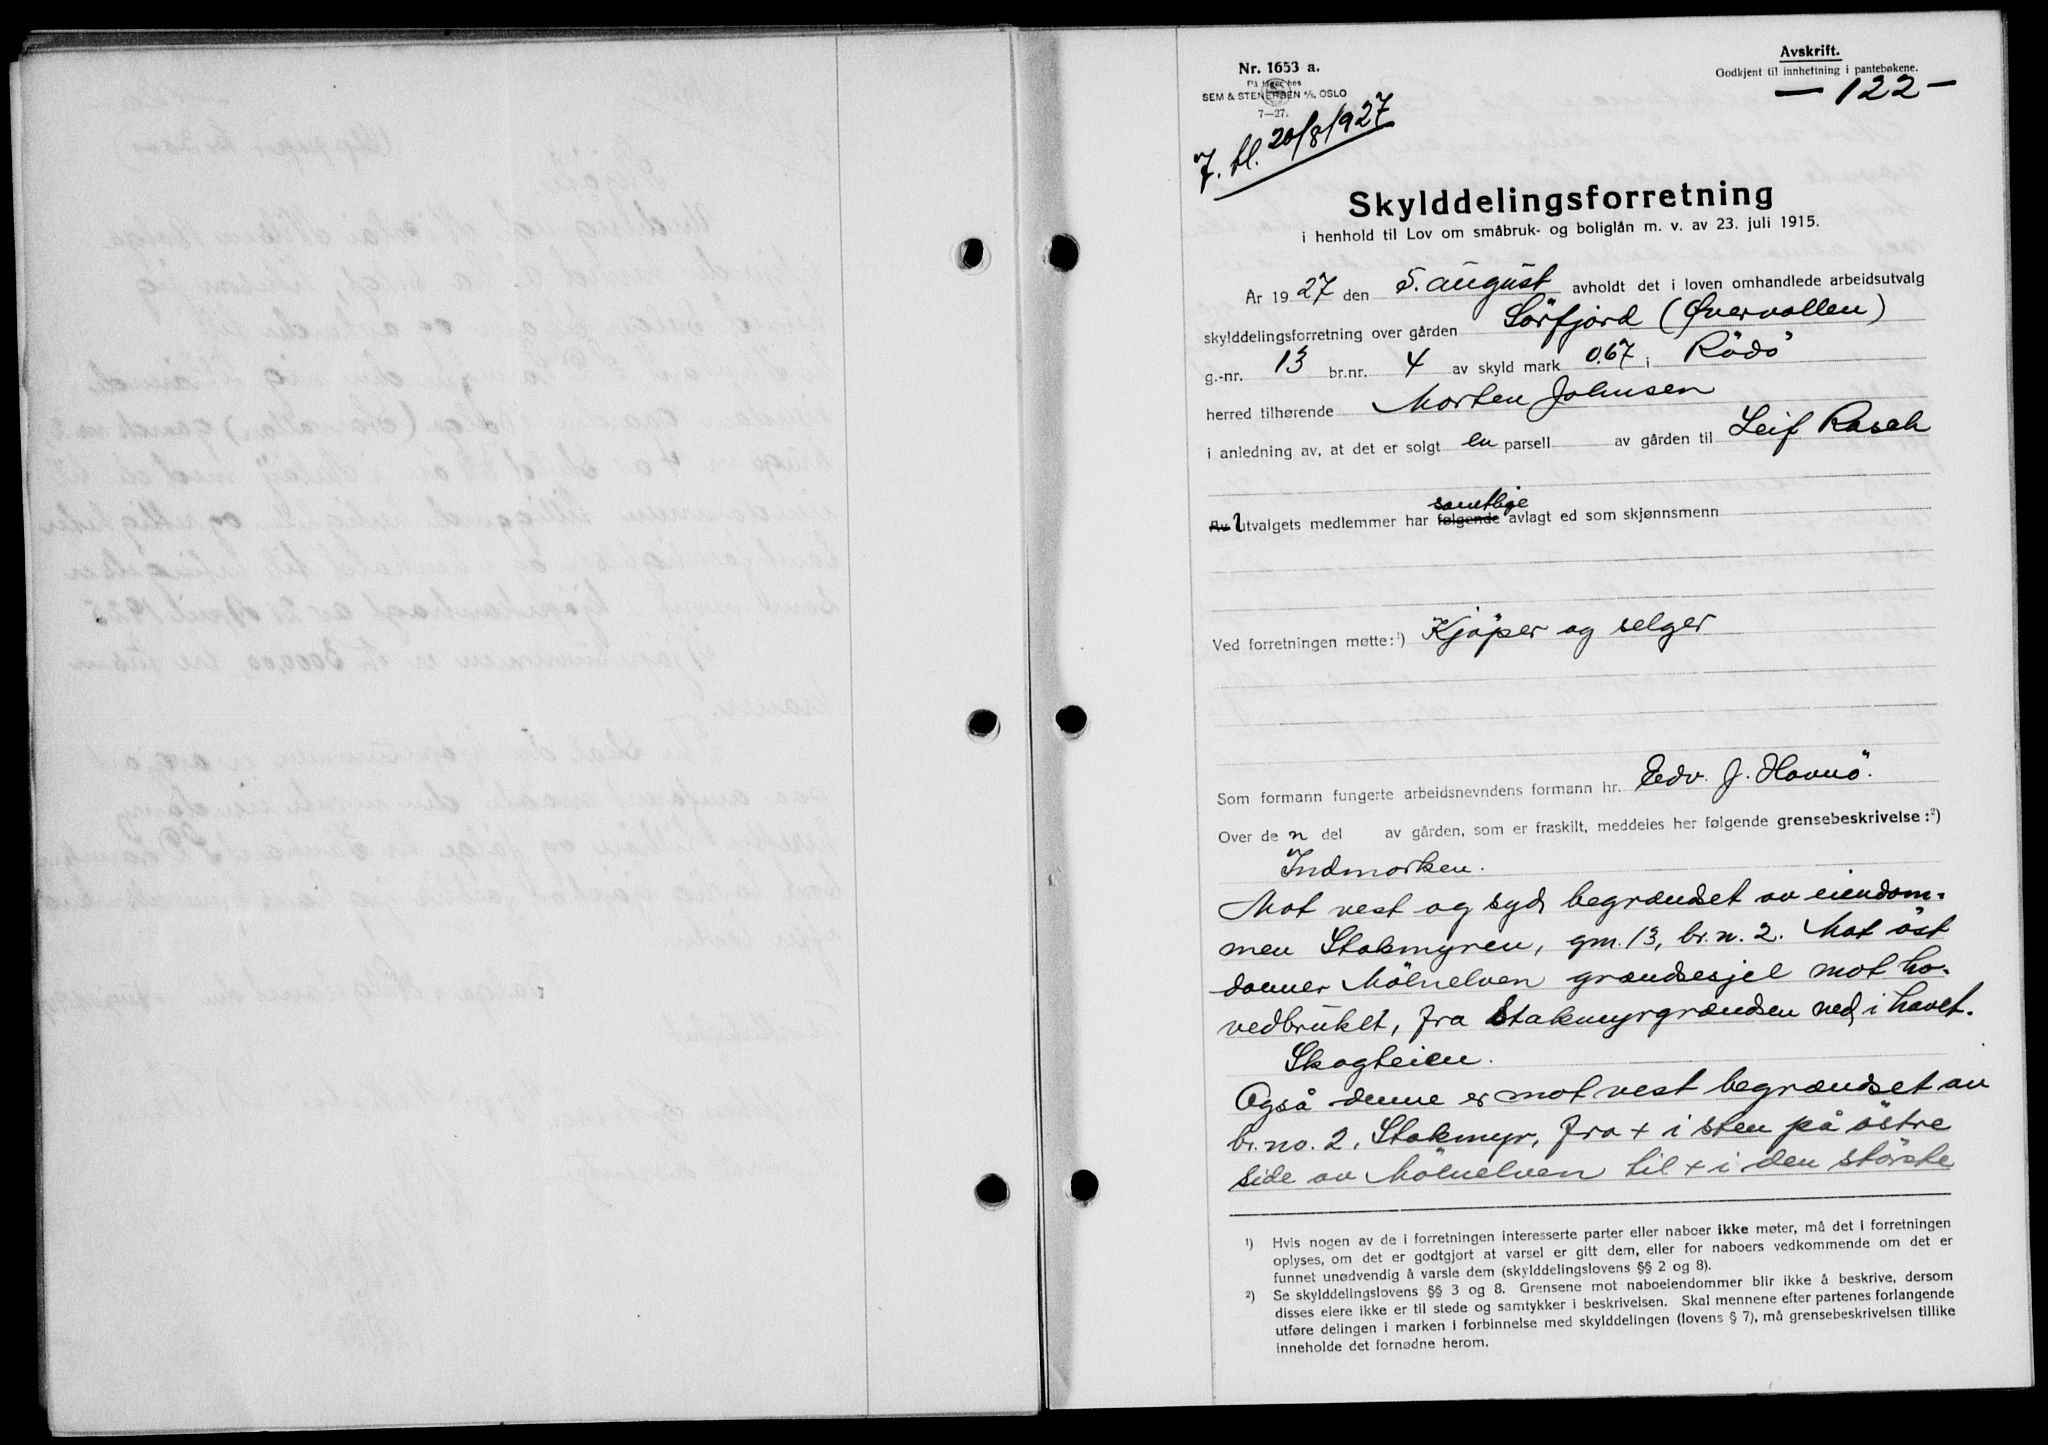 Nr. 1653 a.
På lager hos
SEM & STENERSEN A/S. OSLO
7—27.
Avskrift.
Godkjent til innheftning i pantebøkene.
— 122 —
7. bl. 20/8/1927
Skylddelingsforretning
i henhold til Lov om småbruk- og boliglån m. v. av 23. juli 1915.
År 1927 den 5. august avholdt det i loven omhandlede arbeidsutvalg
skylddelingsforretning over gården Sörfjord (Övervollen)
g.-nr. 13 br.nr. 4 av skyld mark 0.67 i Rödö
herred tilhørende Morten Johnsen
i anledning av, at det er solgt en parsell av gården til Leif Rasch
samtlige
Av Utvalgets medlemmer har følgende avlagt ed som skjønnsmenn
Ved forretningen møtte:¹) Kjöper og selger
Som formann fungerte arbeidsnevndens formann hr. Edv. J. Havnö.
Over den del av gården, som er fraskilt, meddeles her følgende grensebeskrivelse:²)
Indmarken.
Mot vest og syd begrændset av eiendom-
men Stakmyren, gn. 13, br. n. 2. Mot öst
danner Mölnelven grændsesjel mot ho-
vedbruket, fra Stakmyrgrændsen ned i havet.
Skogteien.
Også denne er mot vest begrændset av
br. no. 2, Stakmyr, fra + i sten på östre
side av Mölnelven til + i den störste
¹) Hvis nogen av de i forretningen interesserte parter eller naboer ikke møter, må det i forretningen
oplyses, om det er godtgjort at varsel er gitt dem, eller for naboers vedkommende om det er
funnet unødvendig å varsle dem (skylddelingslovens §§ 2 og 8).
²) Se skylddelingslovens §§ 3 og 8. Grensene mot naboeiendommer blir ikke å beskrive, dersom
disses eiere ikke er til stede og samtykker i beskrivelsen. Skal mennene efter partenes forlangende
utføre delingen i marken i forbinnelse med skylddelingen (lovens § 7), må grensebeskrivelsen tillike
inneholde det fornødne herom.